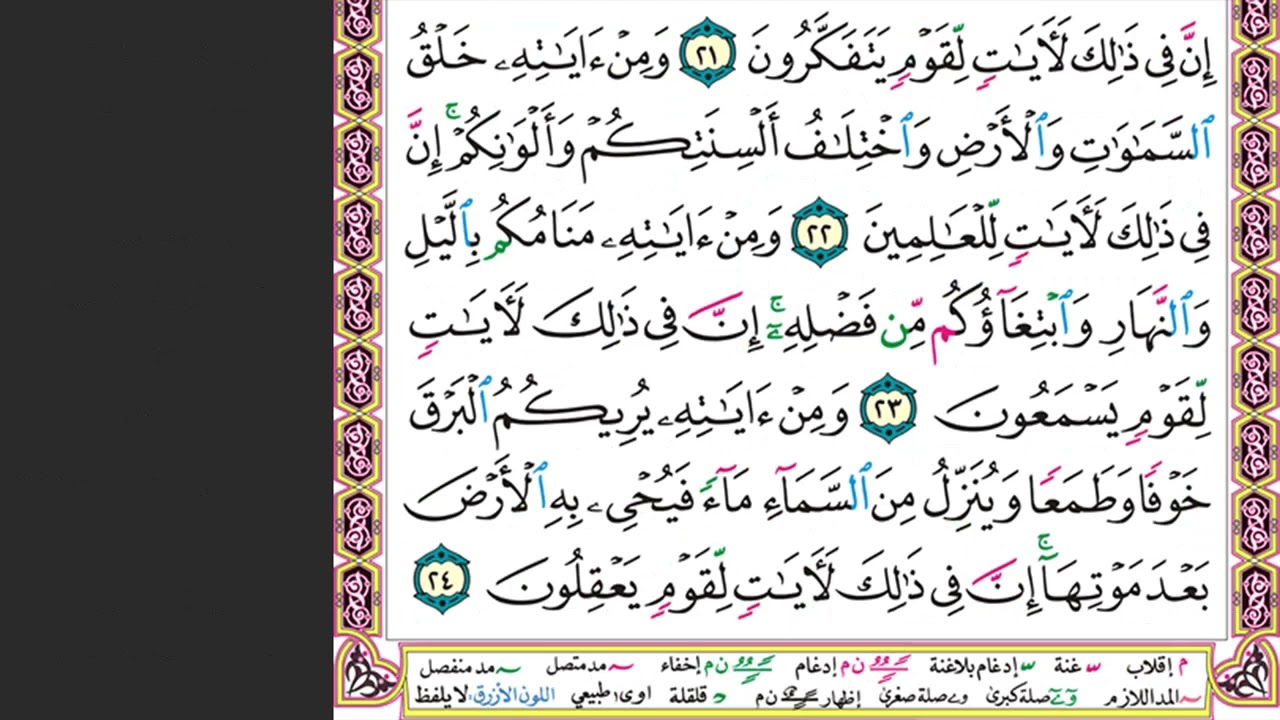 إِنَّ فِى ذَٰلِكَ لَـَٔايَـٰتٍ لِّقَوْمٍ يَتَفَكَّرُونَ ٢١ وَمِنْ ءَايَـٰتِهِۦ خَلْقُ
ٱلسَّمَـٰوَٰتِ وَٱلْأَرْضِ وَٱخْتِلَـٰفُ أَلْسِنَتِكُمْ وَأَلْوَٰنِكُمْ ۚ إِنَّ
فِى ذَٰلِكَ لَـَٔايَـٰتٍ لِّلْعَـٰلِمِينَ ٢٢ وَمِنْ ءَايَـٰتِهِۦ مَنَامُكُم بِٱلَّيْلِ
وَٱلنَّهَارِ وَٱبْتِغَآؤُكُم مِّن فَضْلِهِۦٓ ۚ إِنَّ فِى ذَٰلِكَ لَـَٔايَـٰتٍ
لِّقَوْمٍ يَسْمَعُونَ ٢٣ وَمِنْ ءَايَـٰتِهِۦ يُرِيكُمُ ٱلْبَرْقَ
خَوْفًا وَطَمَعًا وَيُنَزِّلُ مِنَ ٱلسَّمَآءِ مَآءً فَيُحْىِۦ بِهِ ٱلْأَرْضَ
بَعْدَ مَوْتِهَآ ۚ إِنَّ فِى ذَٰلِكَ لَـَٔايَـٰتٍ لِّقَوْمٍ يَعْقِلُونَ ٢٤
م إقلاب غنة إدغام بلاغنة ن م إدغام ن م إخفاء مد متصل مد منفصل
المد اللازم صلة كبرى و ے صلة صغرى إظهار ن م قلقلة اوى طبيعي اللون الأزرق: لا يلفظ